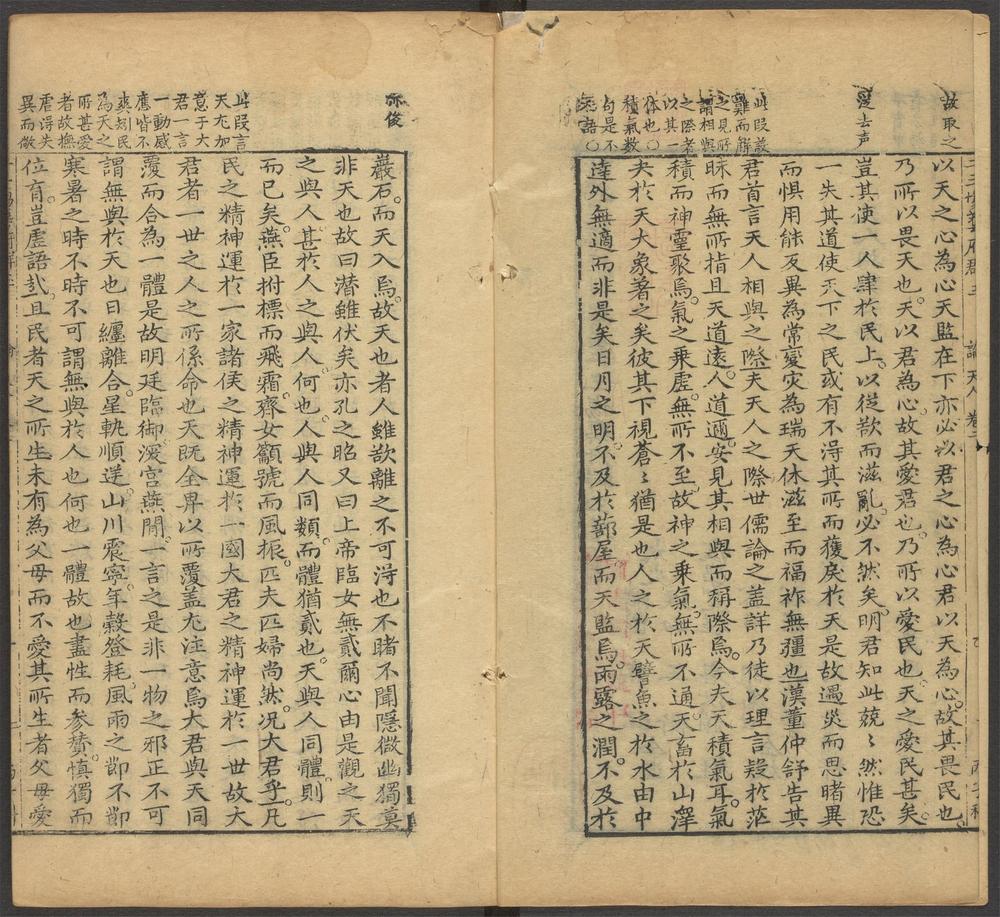 故取之
以天之心為心天監在下亦必以君之心為心君以天為心故其畏民也
乃所以畏天也天以君為心故其愛君也乃所以愛民也天之愛民甚矣
受去声
豈其使一人肆於民上以從欲而滋亂必不然矣明君知此兢々然惟恐
一失其道使天下之民或有不淂其所而獲戾於天是故遇災而思睹異
而懼用能反異為常變灾為瑞天休滋至而福祚無疆也漢董仲舒告其
君首言天人相與之際夫天人之際世儒論之盖詳乃徒以理言疑於茫
昧而無所指且天道遠人道邇安見其相與而稱際焉今夫天積氣耳氣
積而神靈聚焉氣之乘虛無所不至故神之乘氣無所不通天畜於山澤
夬於天大象著之矣彼其下視蒼々猶是也人之於天譬魚之於水由中
達外無適而非是矣日月之明不及於蔀屋而天監焉雨露之潤不及於
此段設
難而觧
之見所
謂相與
之際者
以其一
体也○
積氣数
句是不
亦俊
巖石而天入焉故天也者人雖欲離之不可淂也不睹不聞隱微幽獨莫
非天也故曰潛雖伏矣亦孔之昭又曰上帝臨女無貳爾心由是觀之天
之與人甚於人之與人何也人與人同類而體猶貳也天與人同體則一
而已矣燕臣拊標而飛霜齊女籲號而風振匹夫匹婦尚然况大君乎凡
民之精神運於一家諸侯之精神運於一國大君之精神運於一世故大
君者一世之人之所係命也天既全畀以所覆盖尤注意焉大君與天同
覆而合為一體是故明廷臨御深宮燕閒一言之是非一物之邪正不可
謂無與於天也日纏離合星軌順逆山川震寧年穀登耗風雨之節不節
寒暑之時不時不可謂無與於人也何也一體故也盡性而參賛慎獨而
位育豈虛語㢤且民者天之所生未有為父母而不愛其所生者父母愛
此段言
天尤加
意于大
君一言
一動感
應皆不
爽矧民
為天之
所甚愛
者故撫
虐得失
異而儆